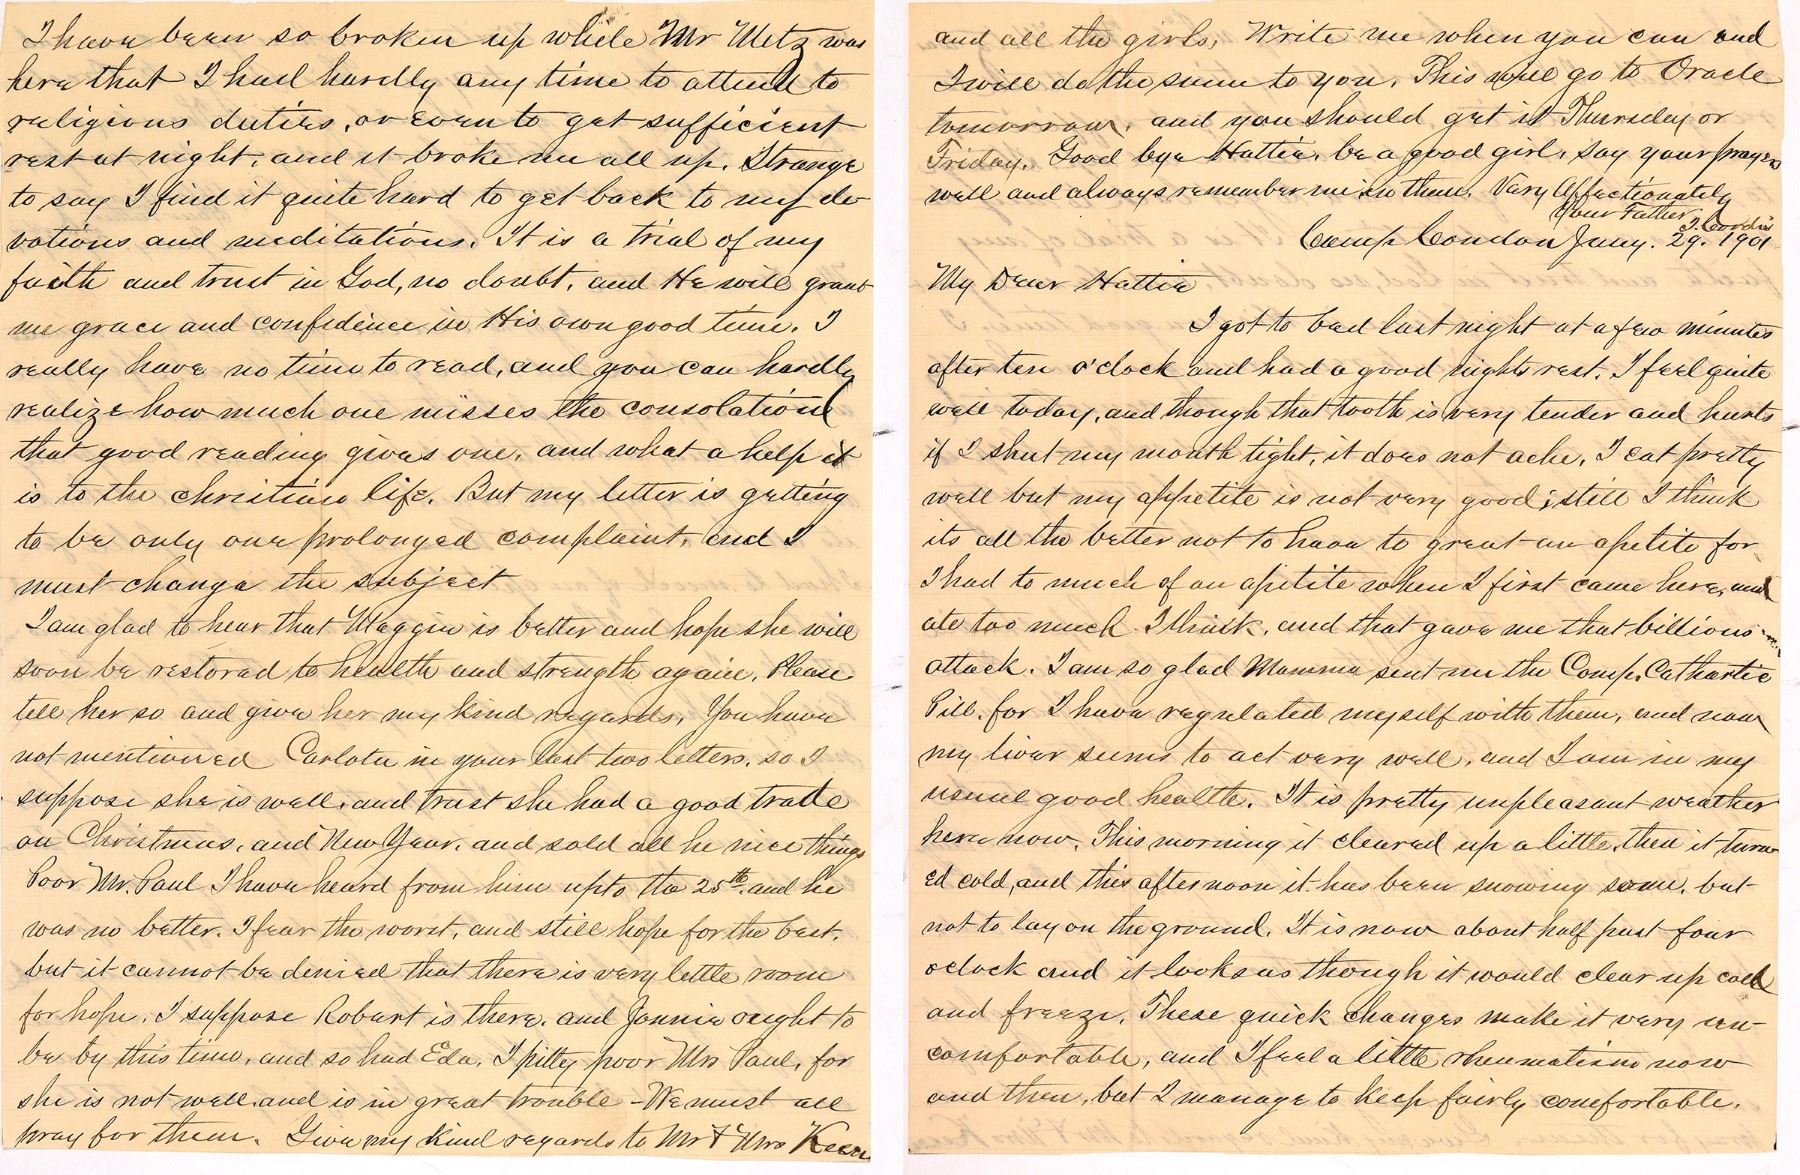 I have been so broken up while Mr Metz was
here that I had hardly any time to attend to
religious duties, or even to get sufficient
rest at night, and it broke me all up. Strange
to say I find it quite hard to get back to my de-
votions and meditations. It is a trial of my
faith and trust in God, no doubt, and He will grant
me grace and confidence in His own good time. I
really have no time to read, and you can hardly
realize how much one misses the consolation
that good reading gives one, and what a help it
is to the christian life. But my letter is getting
to be only one prolonged complaint, and I
must change the subject
I am glad to hear that Maggie is better and hope she will
soon be restored to health and strength again. Please
tell her so and give her my kind regards. You have
not mentioned Carlota in your last two letters, so I
suppose she is well, and trust she had a good trade
on Christmas, and New Year, and sold all he nice things
Poor Mr. Paul I have heard from him up to the 25th and he
was no better. I fear the worst, and still hope for the best,
but it cannot be denied that there is very little room
for hope. I suppose Robert is there, and Jennie ought to
be by this time, and so had Eda. I pitty poor Mrs Paul, for
she is not well, and is in great trouble - We must all
pray for them. Give my kind regards to Mr & Mrs Keen
and all the girls, Write me when you can and
I will do the same to you. This will go to Oracle
tomorrow, and you should get it Thursday or
Friday. Good bye Hattie, be a good girl, say your prayers
well and always remember me in them. Very Affectionately
Your Father
J. Cordis
Camp Condon Jany. 29. 1901
My Dear Hattie
I got to bed last night at a few minutes
after ten o'clock and had a good nights rest. I feel quite
well today, and though that tooth is very tender and hurts
if I shut my mouth tight, it does not ache. I eat pretty
well but my appetite is not very good; still I think
its all the better not to have to great an apetite for
I had to much of an apitite when I first came here, and
ate too much I think, and that gave me that billious
attack. I am so glad Mamma sent me the Comp. Cathartic
Pill. for I have regulated myself with them, and now
my liver seems to act very well, and I am in my
usual good health. It is pretty unpleasant weather
here now. This morning it cleared up a little, then it turn-
ed cold, and this afternoon it has been snowing some, but
not to lay on the ground. It is now about half past four
oclock and it looks as though it would clear up cold
and freeze. These quick changes make it very un-
comfortable, and I feel a little rheumatism now
and then, but I manage to keep fairly comfortable.